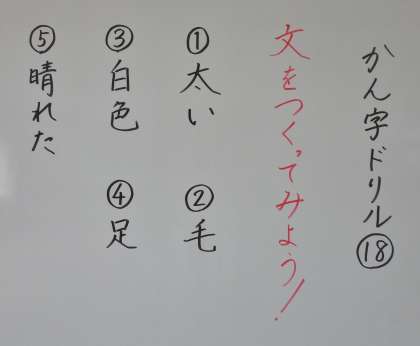 かん字ドリル⑱
文をつくってみよう!
①太い
②毛
③白色
④足
⑤晴れた